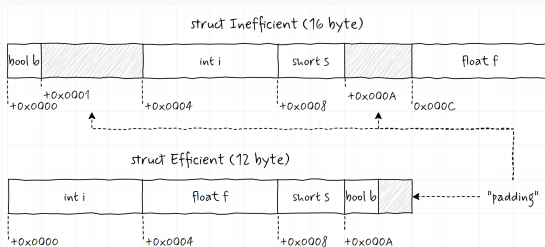 struct Inefficient (16 byte)
bool b int i short s float f
+0x0000 +0x0001 +0x0004 +0x0008 +0x000A 0x000C
struct Efficient (12 byte)
int i float f short s bool b "padding"
+0x0000 +0x0004 +0x0008 +0x000A